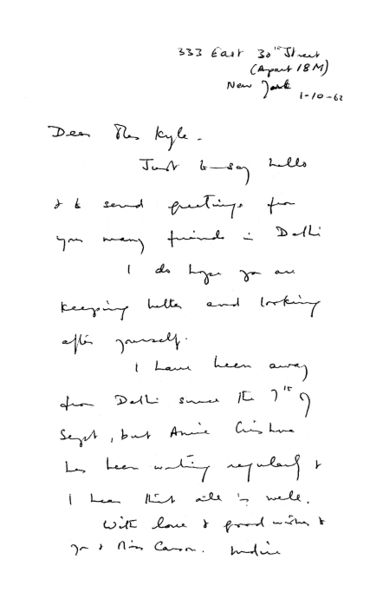 333 East 30th Street
(Apart 18M)
New York
1-10-62
Dear Mrs Kyle.
Just to say hello
& to send greetings from
your many friends in Delhi
I do hope you are
keeping better and looking
after yourself.
I have been away
from Delhi since the 7th of
Sept, but Amie
has been writing regularly &
I hear that all is well.
With love & good wishes to
you & Miss Carson. Indira